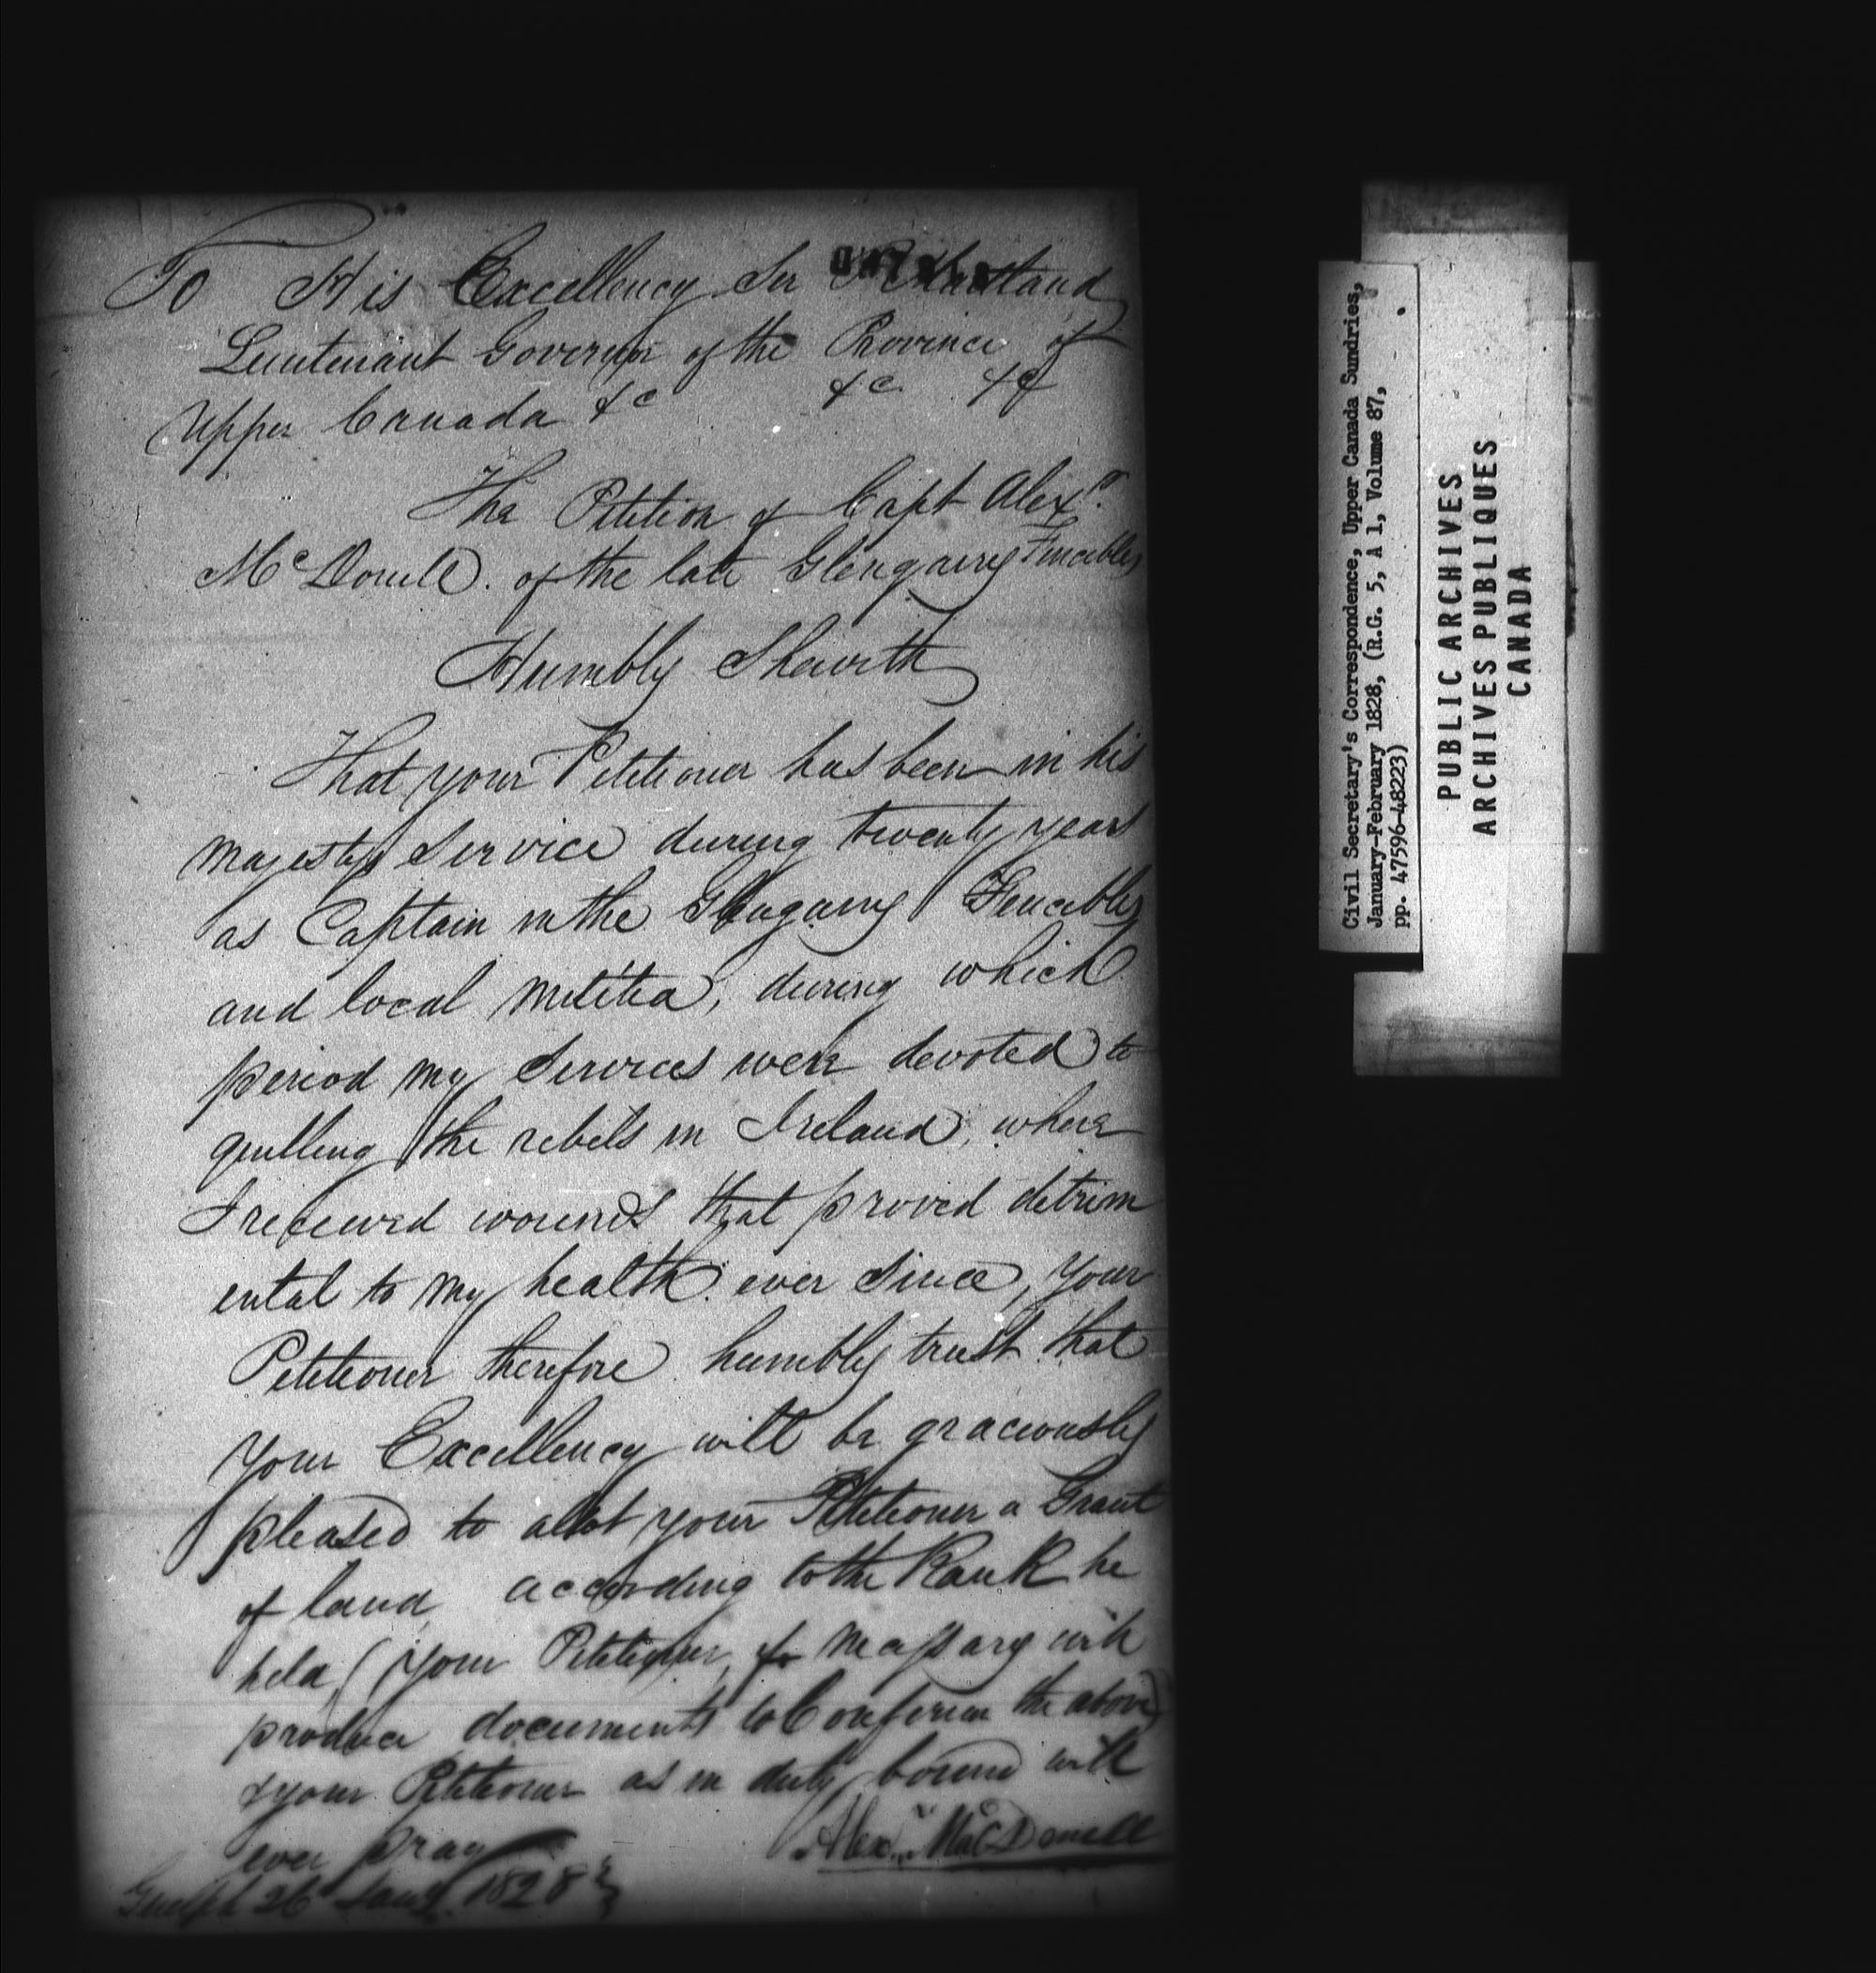 To His Excellency Sir P Maitland
Lieutenant Governor of the Province of
Upper Canada &c &c &c
The Petition of Capt Alexr
McDonell of the late Glengarry Fencibles
Humbly Sheweth
That your Petitioner has been in his
majestys Service during twenty years
as Captain in the Glengarry Fencibles
and local militia, during which
period my Services were devoted to
quelling the rebels in Ireland, where
I received wounds that proved detrim
ental to my health ever since, your
Petitioner therefore humbly trust that
your Excellency will be graciously
pleased to allot your Petitioner a Grant
of land according to the Rank he
held (your Petitioner, if necessary will
produce documents to Conferim the above)
& your Petitioner as in duty bound will
ever pray
Alexr MacDonell
Guelph 26 Jany 1828
Civil Secretary's Correspondence, Upper Canada Sundries,
January-February 1828, (R.G. 5, A 1, Volume 87,
pp. 47596-48223)
PUBLIC ARCHIVES
ARCHIVES PUBLIQUES
CANADA